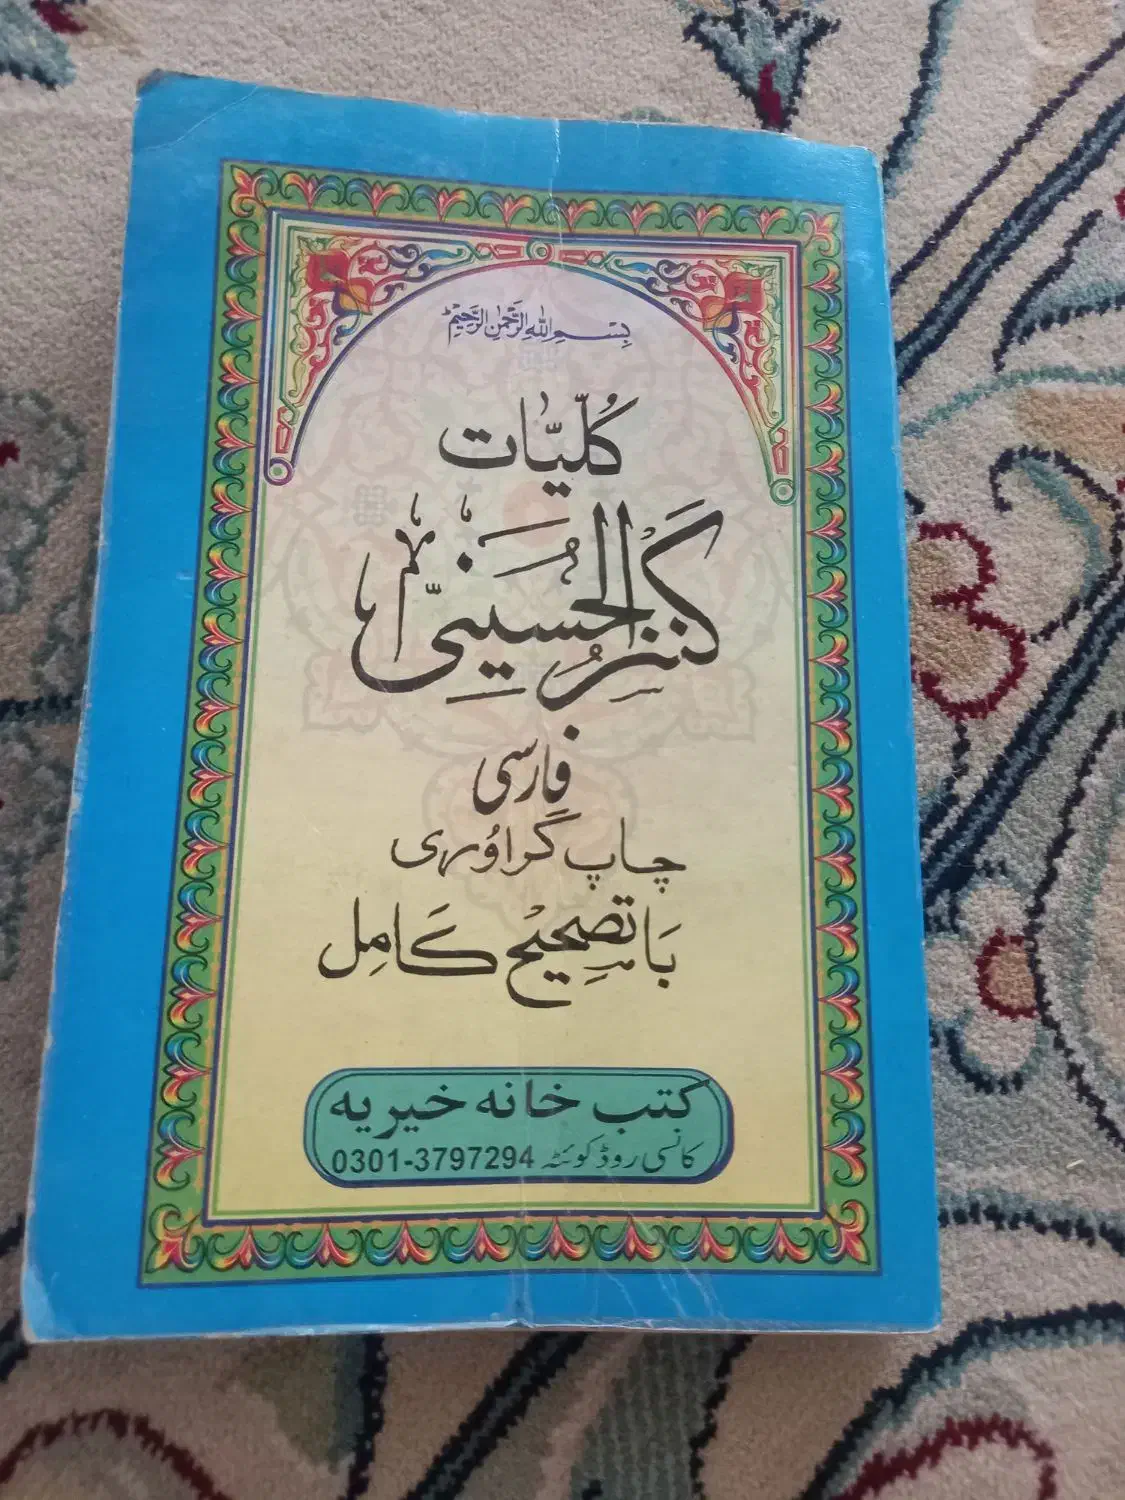 بِسْمِ اللهِ الرَّحْمٰنِ الرَّحِيْمِ
کُلّیّات
کَنزُ الحُسَینی
فارسی
چاپ گراوُری
با تصحیح کامِل
کتب خانه خیریه
کانسی روڈ کوئٹہ 0301-3797294